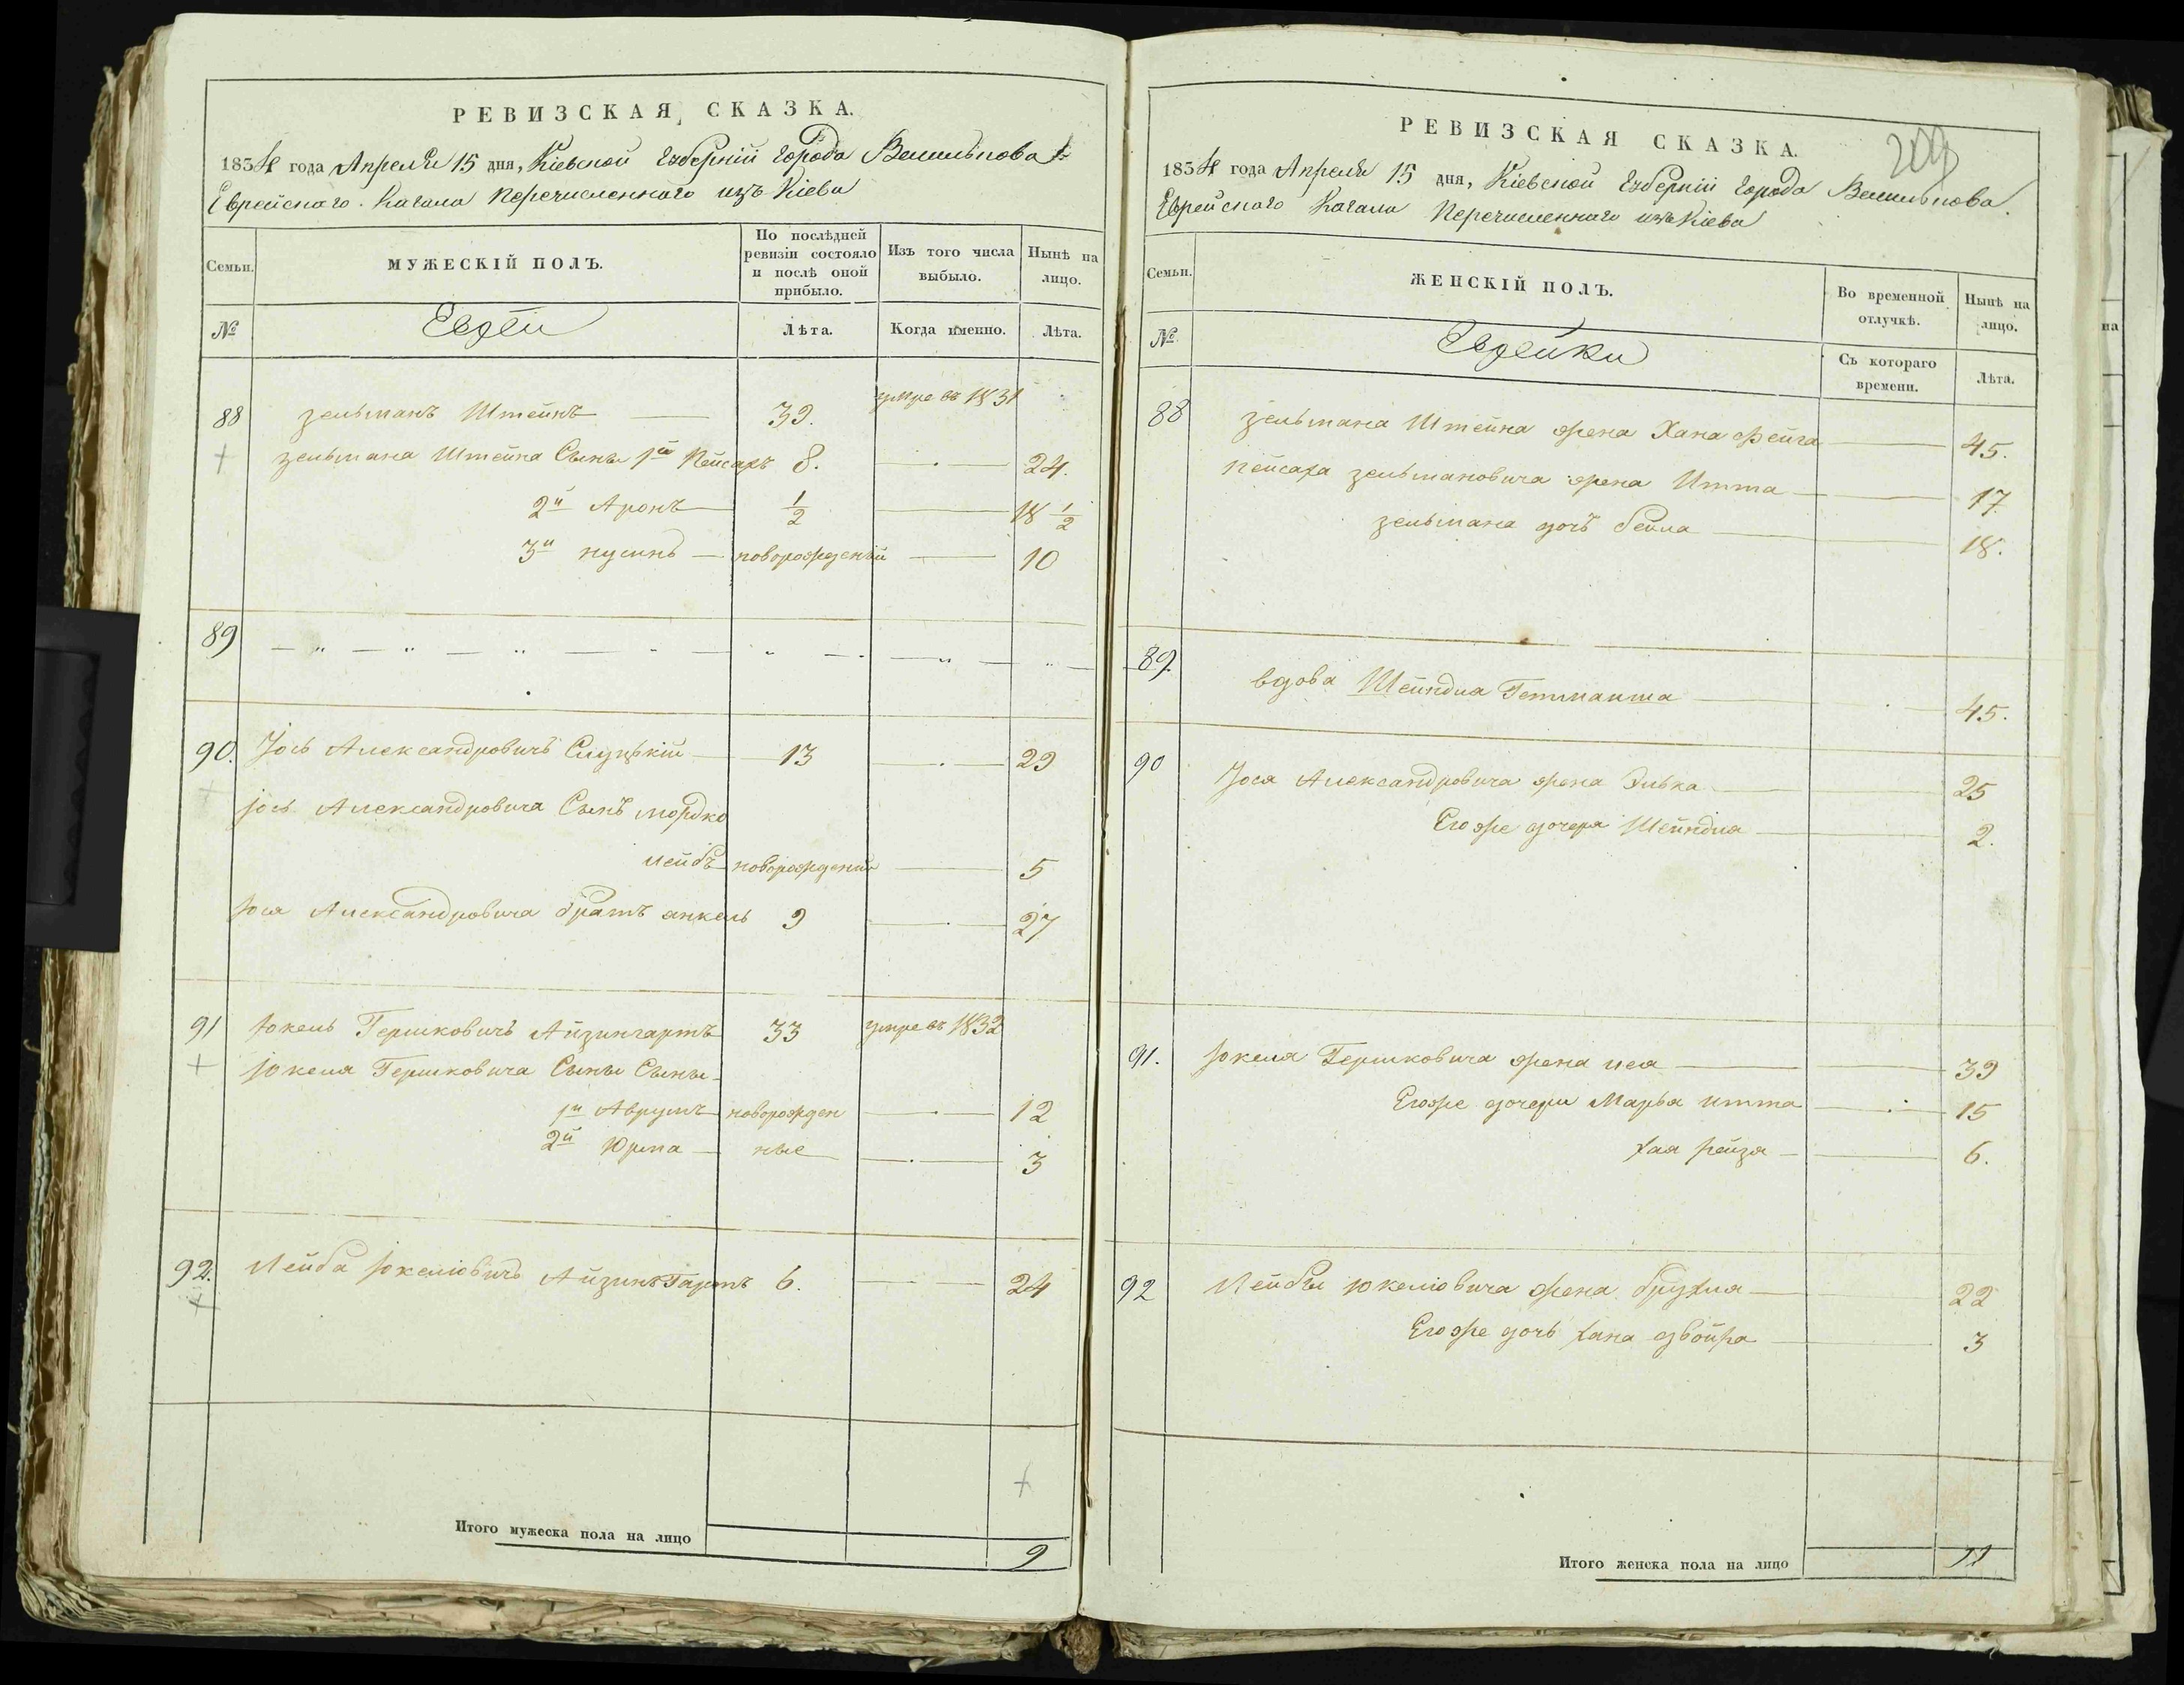 РЕВИЗСКАЯ СКАЗКА.
1834 года Апреля 15 дня, Кіевской Губерніи города Василькова
Еврейскаго Кагала Перечисленнаго изъ Кіева
Семьи.
МУЖЕСКІЙ ПОЛЪ.
По послѣдней ревизіи состояло и послѣ оной прибыло.
Изъ того числа выбыло.
Нынѣ на лицо.
№
Евреи
Лѣта.
Когда именно.
Лѣта.
88 Зельманъ Штейнъ 39. умре въ 1831
Зельмана Штейна Сыны 1й Пейсахъ 8. 24.
2й Аронъ ½ 18 ½
3й нусинъ новорожденій 10
89
90. Іось Александровичъ Слуцкій 13 29
Іось Александровича Сынъ мордко
лейбъ новорожденій 5
Іося Александровича братъ анкель 9 27
91 Іокель Гершковичъ Айзингартъ 33 умре въ 1832
Іокеля Гершковича Сыны Сыны
1й Аврумъ новорожден 12
2й Юрма ные 3
92. Лейба Іокеліовичъ Айзинъгартъ 6. 24
Итого мужеска пола на лицо 9
РЕВИЗСКАЯ СКАЗКА.
1834 года Апреля 15 дня, Кіевской Губерніи города Василькова.
Еврейскаго Кагала Перечисленнаго изъ Кіева
Семьи.
ЖЕНСКІЙ ПОЛЪ.
Во временной отлучкѣ.
Нынѣ на лицо.
№
Еврейки
Съ котораго времени.
Лѣта.
88 Зельмана Штейна жена Хана Фейга 45.
Пейсаха Зельмановича жена Итта 17
Зельмана дочь бейла 18.
89. вдова Шейндля Гетманша 45.
90 Іося Александровича жена Элька 25
Его же дочеря Шейндля 2.
91. Іокеля Гершковича жена лея 39
Его же дочери Марья итта 15
хая рейзя 6.
92 Лейбы Іокеліовича жена брухля 22
Его же дочь хана двойра 3
Итого женска пола на лицо 11